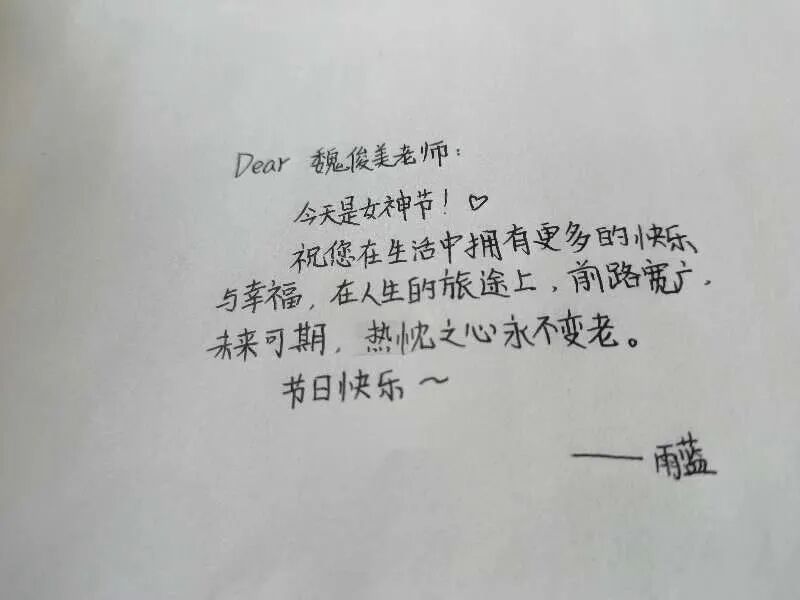 Dear 魏俊美老师：
今天是女神节！♡
祝您在生活中拥有更多的快乐
与幸福，在人生的旅途上，前路宽广，
未来可期，热忱之心永不变老。
节日快乐～
——雨蓝